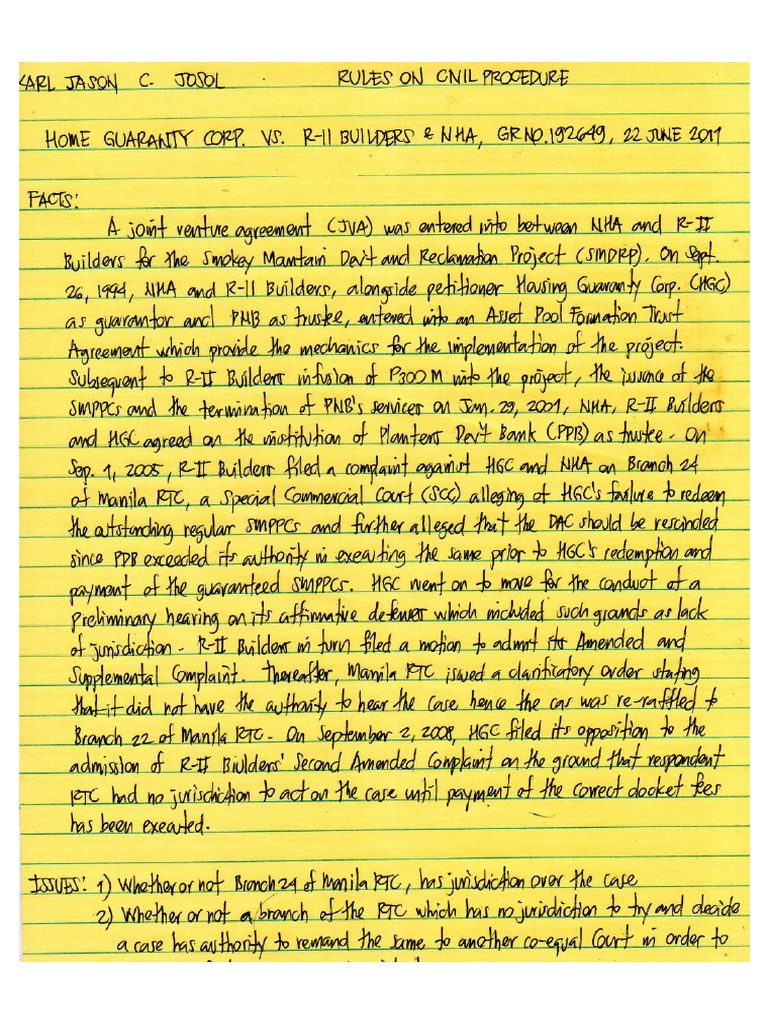 KARL JASON C. JOSOL RULES ON CIVIL PROCEDURE
HOME GUARANTY CORP. VS. R-II BUILDERS & NHA, GR NO. 192649, 22 JUNE 2011
FACTS:
A joint venture agreement (JVA) was entered into between NHA and R-II
Builders for the Smokey Mountain Dev't and Reclamation Project (SMDRP). On Sept.
26, 1994, NHA and R-II Builders, alongside petitioner Housing Guaranty Corp. (HGC)
as guarantor and PNB as trustee, entered into an Asset Pool Formation Trust
Agreement which provide the mechanics for the implementation of the project.
Subsequent to R-II Builders infusion of P300 M into the project, the issence of the
SMPPCs and the termination of PNB's services on Jan. 29, 2001, NHA, R-II Builders
and HGC agreed on the institution of Planters Dev't Bank (PPB) as trustee. On
Sep. 1, 2005, R-II Builders filed a complaint against HGC and NHA on Branch 24
of Manila RTC, a Special Commercial Court (SCC) alleging of HGC's failure to redeem
the outstanding regular SMPPCs and further alleged that the DAC should be rescinded
since PDB exceeded its authority in executing the same prior to HGC's redemption and
payment of the guaranteed SMPPCs. HGC went on to move for the conduct of a
preliminary hearing on its affirmative defenses which included such grounds as lack
of jurisdiction. R-II Builders in turn filed a motion to admit its Amended and
Supplemental Complaint. Thereafter, Manila RTC issued a clarificatory order stating
that it did not have the authority to hear the case hence the cas was re-raffled to
Branch 22 of Manila RTC. On September 2, 2008, HGC filed its opposition to the
admission of R-II Biulders' Second Amended Complaint on the ground that respondent
RTC had no jurisdiction to act on the case until payment of the correct docket fees
has been executed.
ISSUES: 1) Whether or not Branch 24 of Manila RTC, has jurisdiction over the case
2) Whether or not a branch of the RTC which has no jurisdiction to try and decide
a case has authority to remand the same to another co-equal Court in order to